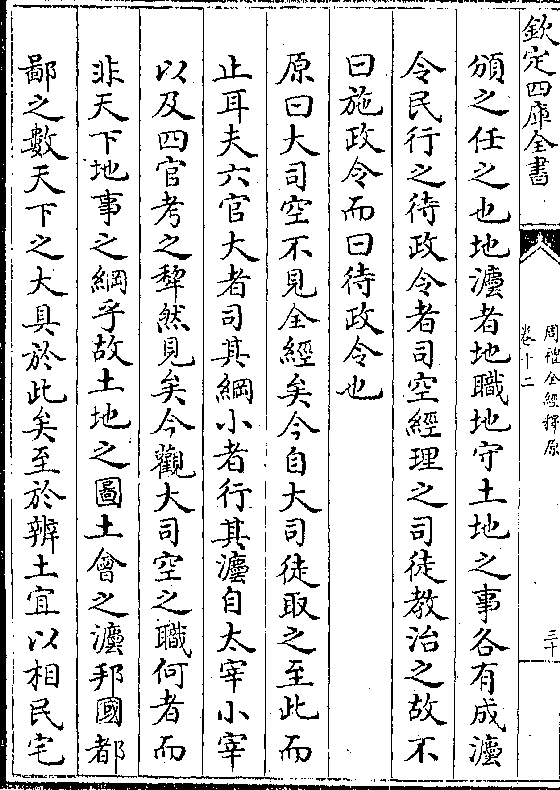 欽定四庫全書
周禮全經釋原
卷十二
三十
頒之任之也地灋者地職地守土地之事各有成灋
令民行之待政令者司空經理之司徒教治之故不
曰施政令而曰待政令也
原曰大司空不見全經矣今自大司徒取之至此而
止耳夫六官大者司其綱小者行其灋自太宰小宰
以及四官考之犂然見矣今觀大司空之職何者而
非天下地事之綱乎故土地之圖土會之灋邦國都
鄙之數天下之大具於此矣至於辨土宜以相民宅